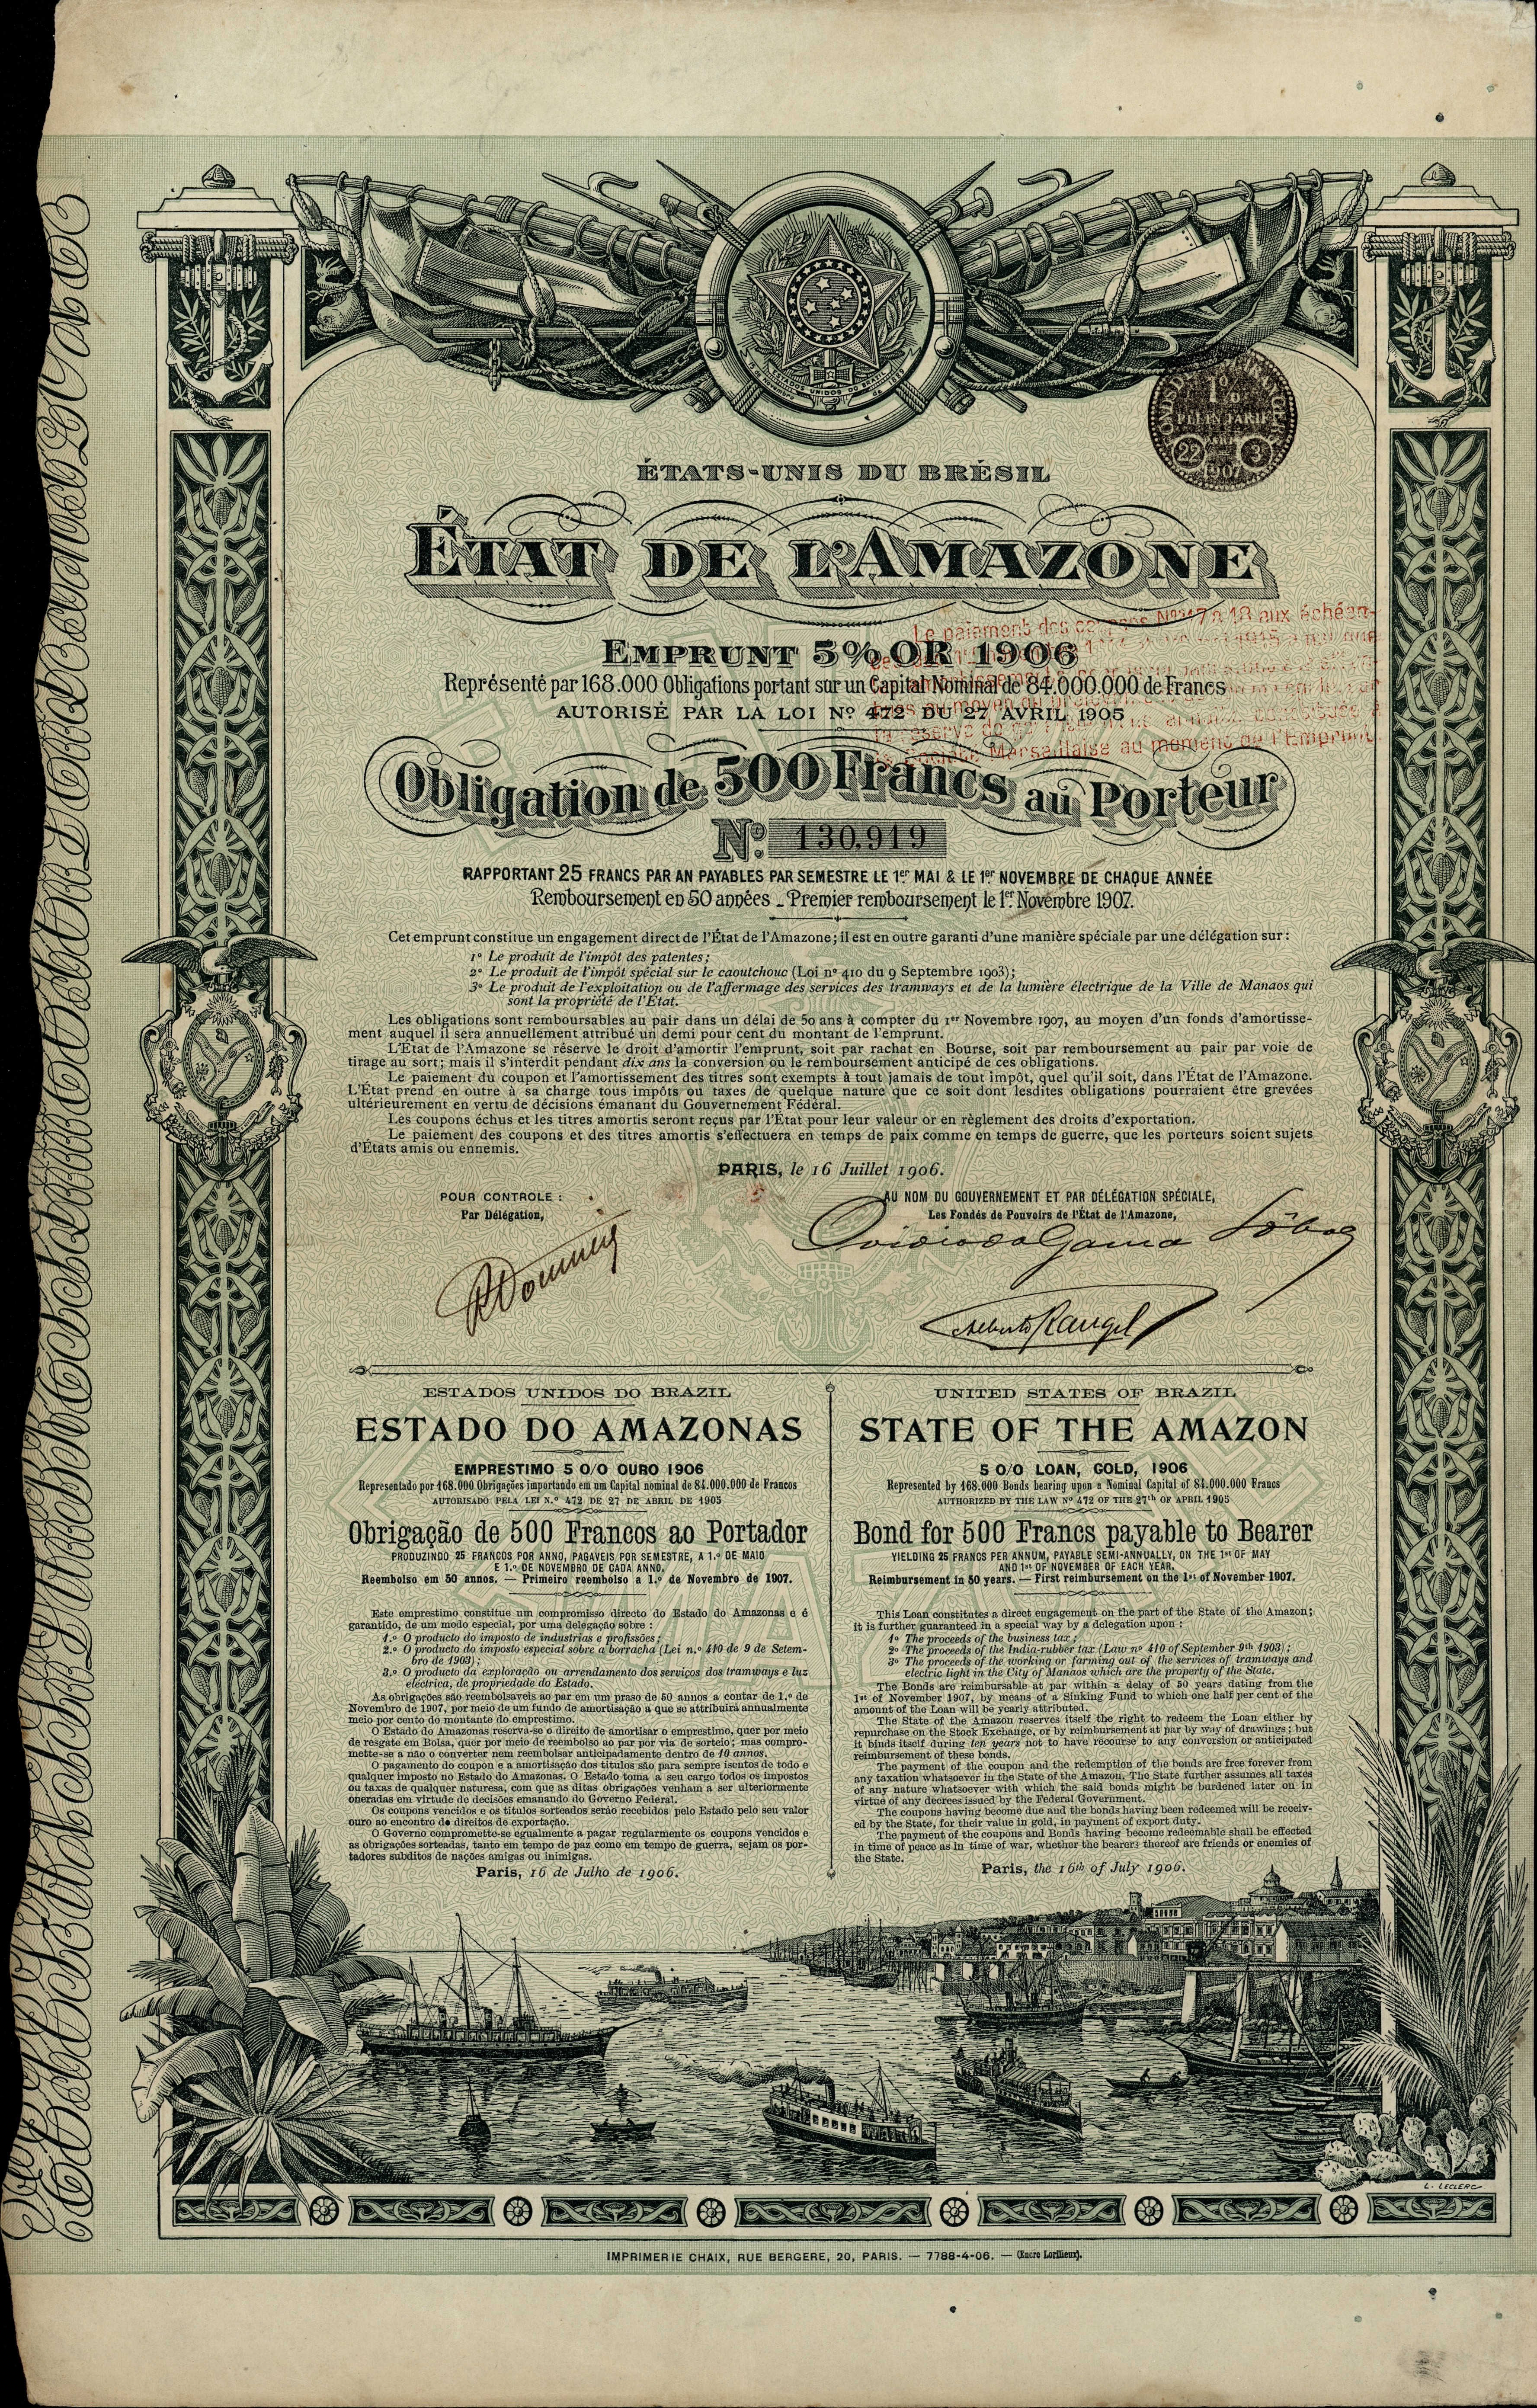 ESTADOS UNIDOS DO BRASIL
15 de Novembro de 1889
FONDS D'ÉTAT ÉTRANGERS
1%
22 3
1907
ÉTATS-UNIS DU BRÉSIL
ÉTAT DE L'AMAZONE
Le paiement des coupons Nos 17 à 18 aux échéan-
EMPRUNT 5% OR 1906
Représenté par 168.000 Obligations portant sur un Capital Nominal de 84.000.000 de Francs
AUTORISÉ PAR LA LOI Nº 472 DU 27 AVRIL 1905
la réserve de
la Société Marseillaise au moment de l'Emprunt.
Obligation de 500 Francs au Porteur
Nº 130,919
RAPPORTANT 25 FRANCS PAR AN PAYABLES PAR SEMESTRE LE 1er MAI & LE 1er NOVEMBRE DE CHAQUE ANNÉE
Remboursement en 50 années _ Premier remboursement le 1er Novembre 1907.
Cet emprunt constitue un engagement direct de l'État de l'Amazone; il est en outre garanti d'une manière spéciale par une délégation sur :
1º Le produit de l'impôt des patentes;
2º Le produit de l'impôt spécial sur le caoutchouc (Loi nº 410 du 9 Septembre 1903);
3º Le produit de l'exploitation ou de l'affermage des services des tramways et de la lumière électrique de la Ville de Manaos qui
sont la propriété de l'État.
Les obligations sont remboursables au pair dans un délai de 50 ans à compter du 1er Novembre 1907, au moyen d'un fonds d'amortisse-
ment auquel il sera annuellement attribué un demi pour cent du montant de l'emprunt.
L'État de l'Amazone se réserve le droit d'amortir l'emprunt, soit par rachat en Bourse, soit par remboursement au pair par voie de
tirage au sort; mais il s'interdit pendant dix ans la conversion ou le remboursement anticipé de ces obligations.
Le paiement du coupon et l'amortissement des titres sont exempts à tout jamais de tout impôt, quel qu'il soit, dans l'État de l'Amazone.
L'État prend en outre à sa charge tous impôts ou taxes de quelque nature que ce soit dont lesdites obligations pourraient être grevées
ultérieurement en vertu de décisions émanant du Gouvernement Fédéral.
Les coupons échus et les titres amortis seront reçus par l'État pour leur valeur or en règlement des droits d'exportation.
Le paiement des coupons et des titres amortis s'effectuera en temps de paix comme en temps de guerre, que les porteurs soient sujets
d'États amis ou ennemis.
PARIS, le 16 Juillet 1906.
POUR CONTROLE :
Par Délégation,
AU NOM DU GOUVERNEMENT ET PAR DÉLÉGATION SPÉCIALE,
Les Fondés de Pouvoirs de l'État de l'Amazone,
Ovidio da Gama Lôbo
Alberto Rangel
ESTADOS UNIDOS DO BRAZIL
ESTADO DO AMAZONAS
EMPRESTIMO 5 O/O OURO 1906
Representado por 168.000 Obrigações importando em um Capital nominal de 84.000.000 de Francos
AUTORISADO PELA LEI N.º 472 DE 27 DE ABRIL DE 1905
Obrigação de 500 Francos ao Portador
PRODUZINDO 25 FRANCOS POR ANNO, PAGAVEIS POR SEMESTRE, A 1.º DE MAIO
E 1.º DE NOVEMBRO DE CADA ANNO.
Reembolso em 50 annos. — Primeiro reembolso a 1.º de Novembro de 1907.
Este emprestimo constitue um compromisso directo do Estado do Amazonas e é
garantido, de um modo especial, por uma delegação sobre :
1.º O producto do imposto de industrias e profissões;
2.º O producto do imposto especial sobre a borracha (Lei n.º 410 de 9 de Setem-
bro de 1903);
3.º O producto da exploração ou arrendamento dos serviços dos tramways e luz
electrica, de propriedade do Estado.
As obrigações são reembolsaveis ao par em um praso de 50 annos a contar de 1.º de
Novembro de 1907, por meio de um fundo de amortisação a que se attribuirá annualmente
meio por cento do montante do emprestimo.
O Estado do Amazonas reserva-se o direito de amortisar o emprestimo, quer por meio
de resgate em Bolsa, quer por meio de reembolso ao par por via de sorteio; mas compro-
mette-se a não o converter nem reembolsar anticipadamente dentro de 10 annos.
O pagamento do coupon e a amortisação dos titulos são para sempre isentos de todo e
qualquer imposto no Estado do Amazonas. O Estado toma a seu cargo todos os impostos
ou taxas de qualquer naturesa, com que as ditas obrigações venham a ser ulteriormente
oneradas em virtude de decisões emanando do Governo Federal.
Os coupons vencidos e os titulos sorteados serão recebidos pelo Estado pelo seu valor
ouro ao encontro de direitos de exportação.
O Governo compromette-se egualmente a pagar regularmente os coupons vencidos e
as obrigações sorteadas, tanto em tempo de paz como em tempo de guerra, sejam os por-
tadores subditos de nações amigas ou inimigas.
Paris, 16 de Julho de 1906.
UNITED STATES OF BRAZIL
STATE OF THE AMAZON
5 O/O LOAN, GOLD, 1906
Represented by 168.000 Bonds bearing upon a Nominal Capital of 84.000.000 Francs
AUTHORIZED BY THE LAW Nº 472 OF THE 27th OF APRIL 1905
Bond for 500 Francs payable to Bearer
YIELDING 25 FRANCS PER ANNUM, PAYABLE SEMI-ANNUALLY, ON THE 1st OF MAY
AND 1st OF NOVEMBER OF EACH YEAR.
Reimbursement in 50 years. — First reimbursement on the 1st of November 1907.
This Loan constitutes a direct engagement on the part of the State of the Amazon;
it is further guaranteed in a special way by a delegation upon :
1º The proceeds of the business tax;
2º The proceeds of the India-rubber tax (Law nº 410 of September 9th 1903);
3º The proceeds of the working or farming out of the services of tramways and
electric light in the City of Manaos which are the property of the State.
The Bonds are reimbursable at par within a delay of 50 years dating from the
1st of November 1907, by means of a Sinking Fund to which one half per cent of the
amount of the Loan will be yearly attributed.
The State of the Amazon reserves itself the right to redeem the Loan either by
repurchase on the Stock Exchange, or by reimbursement at par by way of drawings; but
it binds itself during ten years not to have recourse to any conversion or anticipated
reimbursement of these bonds.
The payment of the coupon and the redemption of the bonds are free forever from
any taxation whatsoever in the State of the Amazon. The State further assumes all taxes
of any nature whatsoever with which the said bonds might be burdened later on in
virtue of any decrees issued by the Federal Government.
The coupons having become due and the bonds having been redeemed will be receiv-
ed by the State, for their value in gold, in payment of export duty.
The payment of the coupons and Bonds having become redeemable shall be effected
in time of peace as in time of war, whether the bearers thereof are friends or enemies of
the State.
Paris, the 16th of July 1906.
L. LECLERC
IMPRIMERIE CHAIX, RUE BERGERE, 20, PARIS. — 7788-4-06. — (Encre Lorilleux).